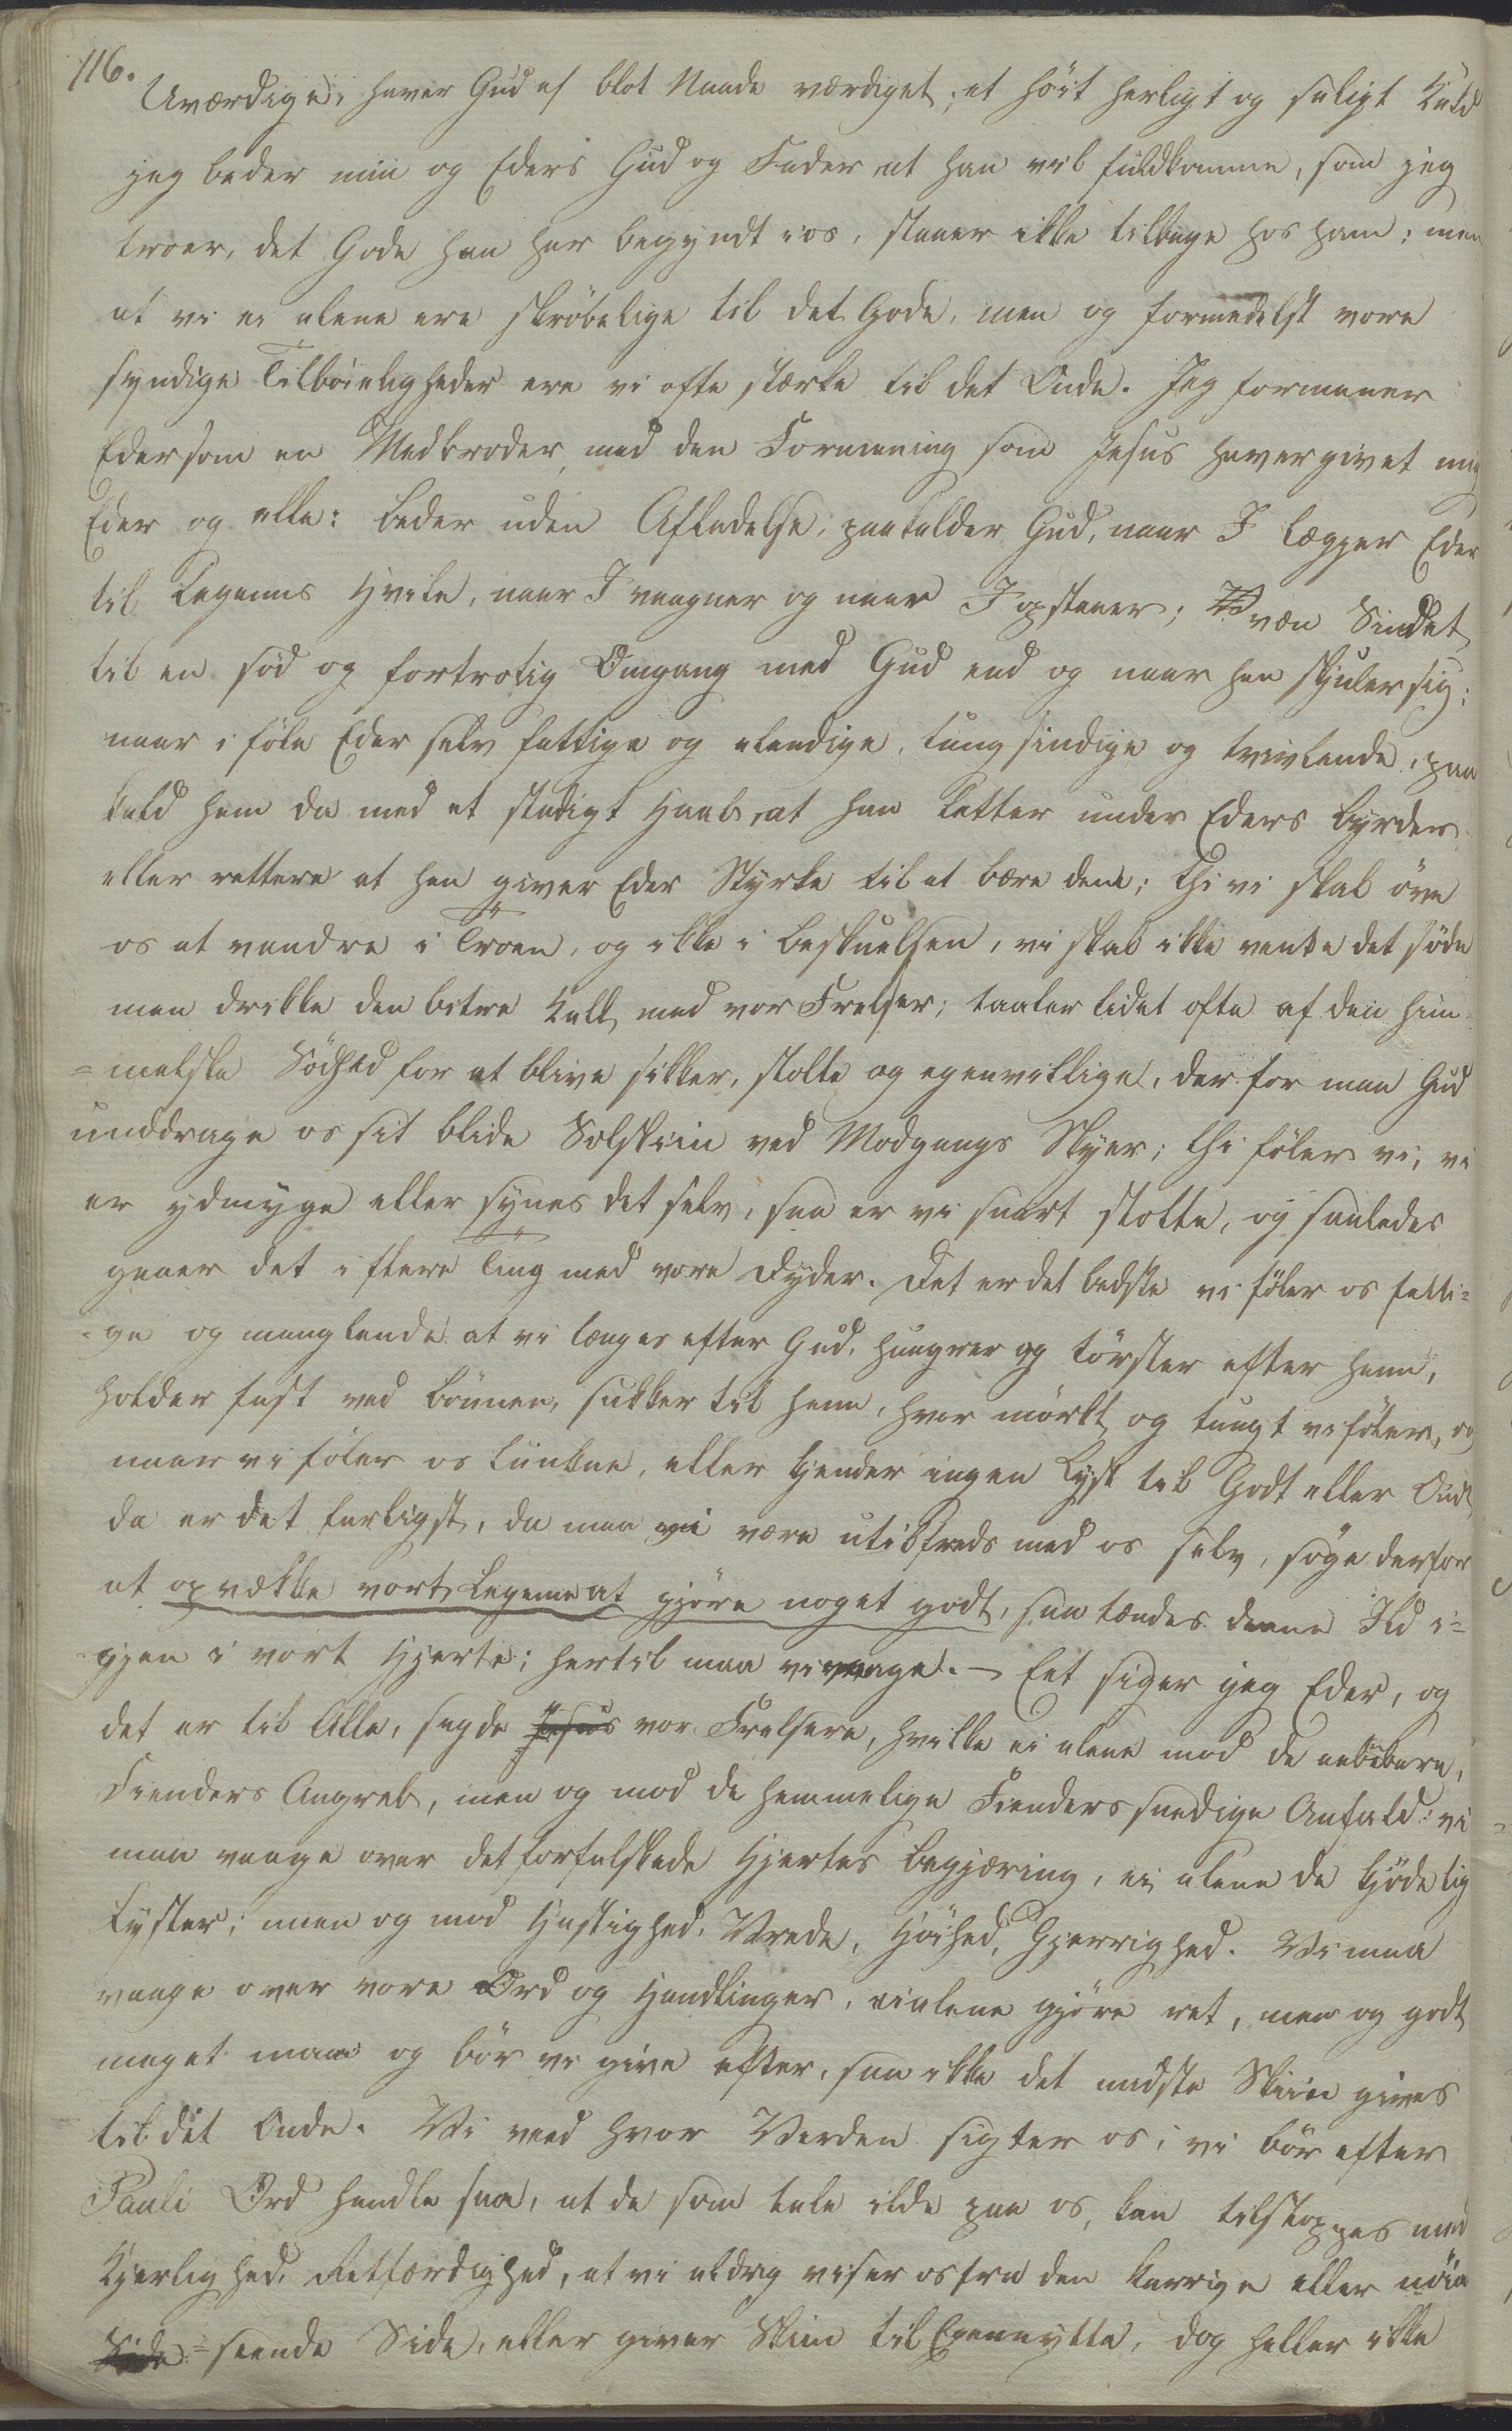 116.
Uværdige, haver Gud af blot Naade værdiget; et høit herligt og saligt Kald
jeg beder min og Eders Gud og Fader at han vil fuldkomme, som jeg
troer, det Gode han har begyndt i os, staaer ikke tilbage hos ham: men
at vi ei alene ere skrøbelige til det Gode, men og formedelst vore
syndige Tilbøieligheder ere vi ofte stærke til det Onde. Jeg formaner
Eder som en Medbroder, med den Formaning som Jesus haver givet mig
Eder og alle: beder uden Afladelse, paakalder Gud, naar I lægger Eder
til Legems Hvile, naar I vaagner og naar I opstaaer; væn Sindet
til en sød og fortrolig Omgang med Gud end og naar han skjuler sig;
naar i føle Eder selv fattige og elendige, tungsindige og tvivlende, paa
kald ham da med et stadigt Haab, at han letter under Eders Byrder
eller rettere at han giver Eder Styrke til at bære dem; thi vi skal øve
os at vandre i Troen, og ikke i beskuelsen, vi skal ikke vente det søde
men drikke den bitre Kalk med vor Frelser; taaler lidet ofte af den him-
=melske Sødhed for at blive sikker, stolte og egenvillige, derfor maa Gud
unddrage os sit blide Solskin ved Modgangs Skyer; thi føler vi, vi
er ydmyge eller synes det selv, saa er vi snart stolte, og saaledes
gaaer det i flere Ting med vore Dyder. Det er det bedste vi føler os fatti=
=ge og manglende at vi længes efter Gud, hungrer og tørster efter ham,
holder fast ved bønnen, sukker til ham, hvor mørkt og tungt vi føler, og
naar vi føler os lunkne, eller kjender ingen Lyst til Godt eller Ondt
da er det farligst, da maa vi være utilfreds med os selv, søge derfor
at opvække vort Legeme at gjøre noget godt, saa tændes denne Ild i=
gjen i vort Hjerte; hertil maa vi vaage. – Eet siger jeg Eder, og
det er til Alle, sagde Jesus vor Frelsere, hvilke ei alene mod de aabenbare,
Fienders Angreb, men og mod de hemmelige Fienders snedige Anfald: vi
maa vaage over det forfalskede Hjertes begjæring, ei alene de kjødelig
Lyster; men og mod Hastighed, Vrede, Høihed, Gjerrighed. Vi maa
vaage over vore Ord og Handlinger, ei alene gjøre ret, men og godt
meget maa og bør vi give efter, saa ikke det mindste Skin gives
til det Onde. Vi veed hvor Verden sigter os, vi bør efter
Pauli Ord handle saa, at de som tale ilde paa os, kan tilstoppes med
Kjerlighed, Retfærdighed, at vi aldrig viser os fra den karrige eller nøie
Side =seende Side, eller giver Skin til Egennytte, dog heller ikke